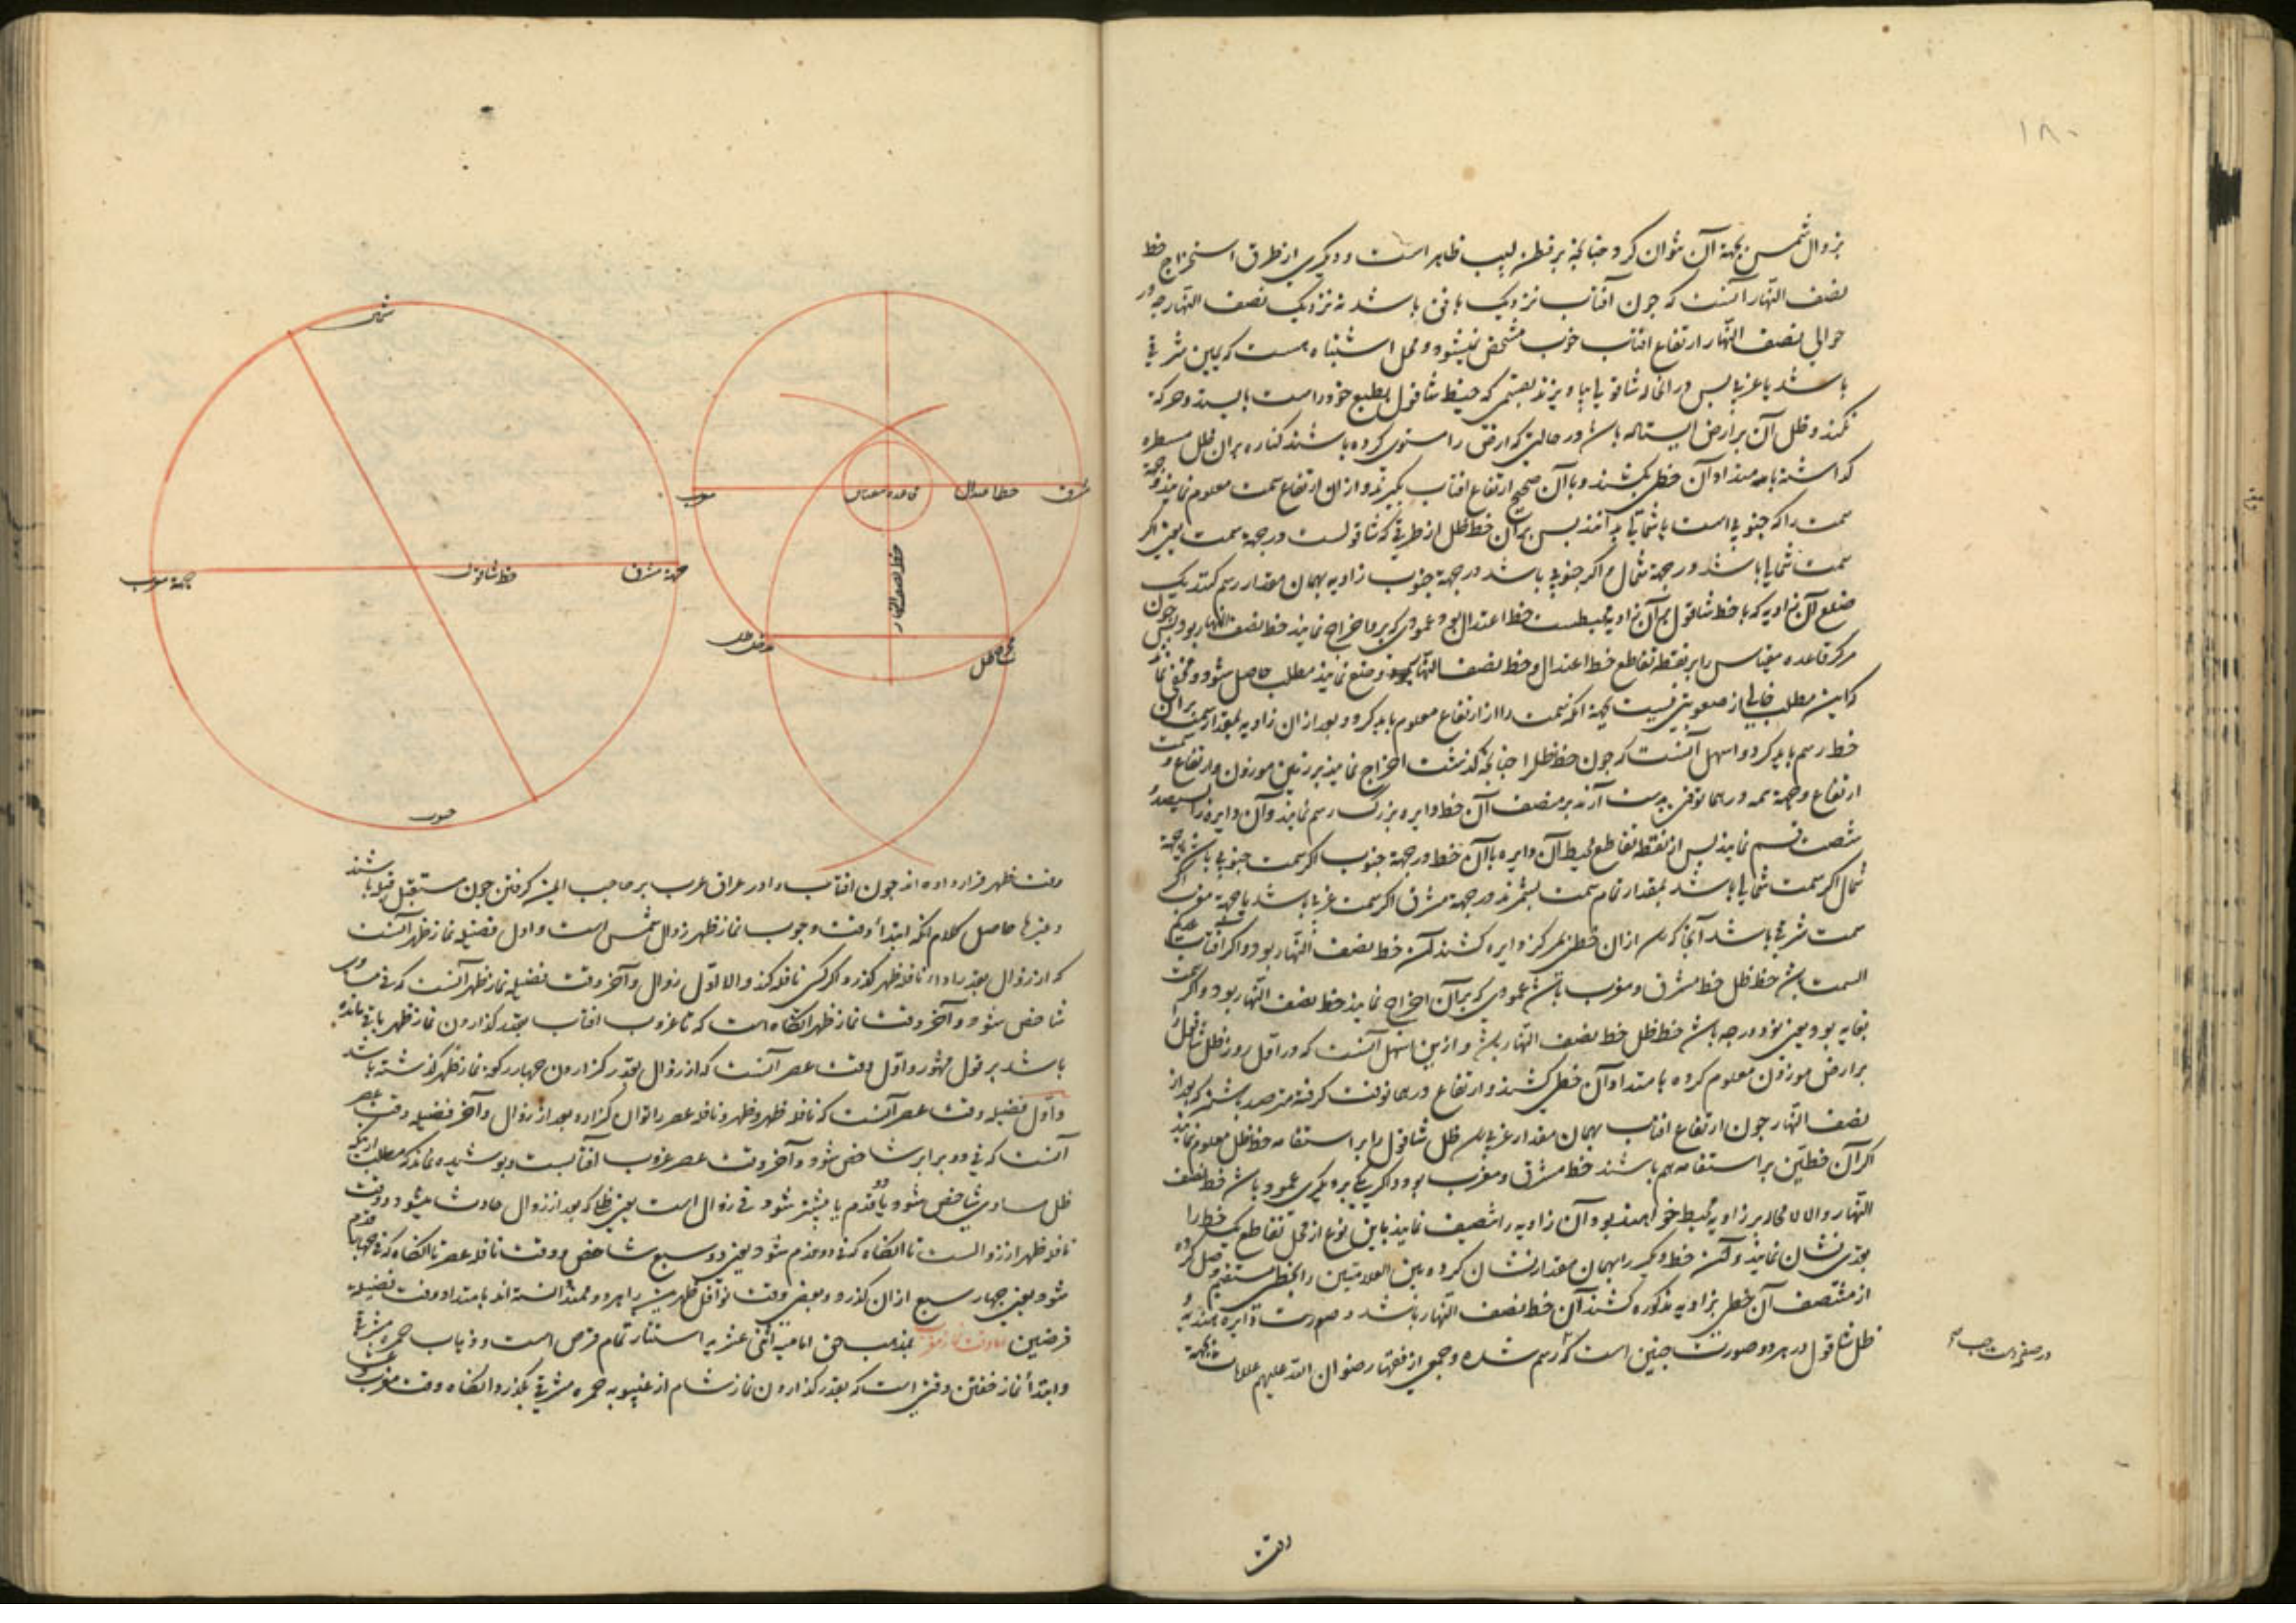 ۱۸۰
بزوال شمس بجهة آن نتوان کرد چنانچه بر فطن لبیب ظاهر است و دیگری از طرق استخراج خط
نصف النهار آنست که چون آفتاب نزدیک بافق باشد نه نزدیک نصف النهار چه در
حوالی نصف النهار ارتفاع افتاب خوب مشخص نمیشود و محل اشتباه هست که یمین شرقی
باشد یا غربی پس در انحال شاقولی بیاویزند بقسمی که خیط شاقول بطبع خود راست بایستد و حرکة
نکند و ظل آن بر ارض ایستاده باشد در حالتی که ارض را مستوی کرده باشند کناره بران ظل مسطره
کذاشته بامتداد آن خطی بکشند و با آن صحیح ارتفاع افتاب بکیرند و از ان ارتفاع سمت معلوم نمایند و جهة
سمت را که جنوبی است یا شمالی بدانند پس بران خط ظل از طرفی که شاقولست در جهة سمت یعنی اکر
سمت شمالی باشد در جهة شمال و اکر جنوبی باشد در جهة جنوب زاویه بهمان مقدار رسم کنند یک
ضلع آن زاویه که با خط شاقول بر آن زاویه محیطست خط اعتدال بود و عمودی که برو اخراج نمایند خط نصف النهار بود پس چون
مرکز قاعده مقیاس را بر نقطه تقاطع خط اعتدال و خط نصف النهار وضع نمایند مطلب حاصل شود و مخفی نماند
که این مطلب خالی از صعوبتی نیست بجهة انکه سمت را از ارتفاع معلوم باید کرد و بعد از ان زاویه بمقدار سمت بران
خط رسم باید کرد و اسهل آنست که چون خط ظل را چنانچه کذشت اخراج نمایند بر زمین موزون و ارتفاع و سمت
ارتفاع و جهة سمت در همانوقت بدست آرند بر منصف آن خط دایره بزرک رسم نمایند و آن دایره را سیصد و
شصت قسم نمایند پس از نقطه تقاطع محیط آن دایره با آن خط در جهة جنوب اکر سمت جنوبی باشد یا جهة
شمال اکر سمت شمالی باشد بمقدار تمام سمت بشمرند در جهة مشرق اکر سمت غربی باشد یا جهة مغرب اکر
سمت شرقی باشد آنجا که رسد از ان خطی بمرکز دایره کشند آن خط نصف النهار بود و اکر افتاب عدیم
السمت باشد خط ظل خط مشرق و مغرب باشد عمودی که بر آن اخراج نمایند خط نصف النهار بود و اکر سمت
بغایه بود یعنی نود درجه باشد خط ظل خط نصف النهار باشد و ازین اسهل آنست که در اول روز ظل شاقول
بر ارض موزون معلوم کرده بامتداد آن خطی کشند و ارتفاع در همانوقت کرفته مترصد باشند که بعد از
نصف النهار چون ارتفاع افتاب بهمان مقدار غربی رسد ظل شاقول را بر استقامه خط ظل معلوم نمایند
اکر آن خطین بر استقامه هم باشند خط مشرق و مغرب بود و اکر یکی بر دیکری عمود باشد خط نصف
النهار و الا لا محاله بر زاویه محیط خواهند بود آن زاویه را تنصیف نمایند باین نوع از محل تقاطع یک خط را
بقدری نشان نمایند و آن خط دیکر را بهمان مقدار نشان کرده بین العلامتین را بخطی مستقیم وصل کرده
از منتصف آن خطی بزاویه مذکوره کشند آن خط نصف النهار باشد و صورت دایره هندیه و
ظل شاقول در هر دو صورت چنین است که رسم شده و جمعی از فقهاء رضوان الله علیهم علامات
وقت
شمال
جهة مغرب
خط شاقول
جهة مشرق
جنوب
مغرب
قاعده مقیاس
خط اعتدال
مشرق
خط نصف النهار
مدخل ظل
مخرج ظل
وقت ظهر قرار داده اند چون افتاب را در عراق عرب بر حاجب ایمن کرفتن چون مستقبل قبله باشند
و غیرها حاصل کلام انکه ابتداء وقت وجوب نماز ظهر زوال شمس است و اول فضیله نماز ظهر آنست
که از زوال بقدر اداء نافله ظهر کذرد اکر کسی نافله کند و الا اول زوال و آخر وقت فضیله نماز ظهر آنست که فی مساوی
شاخص شود و آخر وقت نماز ظهر انکاه است که تا غروب افتاب بقدر کذاردن نماز ظهر باقی مانده
باشد بر قول مشهور و اول وقت عصر آنست که از زوال بقدر کزاردن چهار رکعة نماز ظهر کذشته باشد
و اول فضیله وقت عصر آنست که نافله ظهر و ظهر و نافله عصر را توان کزارد بعد از زوال و آخر فضیله وقت عصر
آنست که فی دو برابر شاخص شود و آخر وقت عصر غروب آفتابست و پوشیده نماند که مطلب ازینکه
ظل مساوی شاخص شود یا دو قدم یا بیشتر شود فی زوال است یعنی ظلی که بعد از زوال حادث میشود و وقت
نافله ظهر از زوالست تا انکاه که فی دو قدم شود یعنی دو سبع شاخص و وقت نافله عصر تا انکاه که فی چهار قدم
شود یعنی چهار سبع از ان کذرد و بعضی وقت نوافل ظهرین را هر دو ممتد دانسته اند بامتداد وقت فضیله
فرضین اما وقت نماز مغرب بمذهب حق امامیه اثنی عشریه استتار تمام قرص است و ذهاب حمره مشرقی
و ابتداء نماز خفتن وقتی است که بقدر کذاردن نماز شام از غیبوبه حمره مشرقی بکذرد و انکاه وقت مغرب